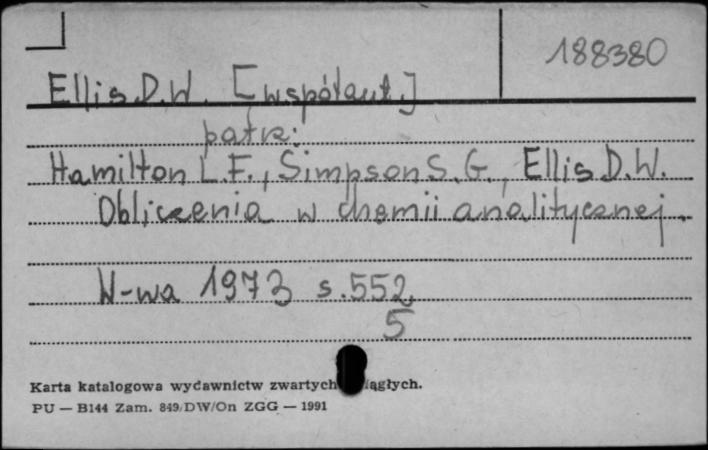 188380
Ellis D.W. [współaut.]
patrz:
Hamilton L.F., Simpson S.G., Ellis D.W.
Obliczenia w chemii analitycznej.
W-wa 1973 s.552
5
Karta katalogowa wydawnictw zwartych
PU — B144 Zam. 849/DW/On ZGG — 1991